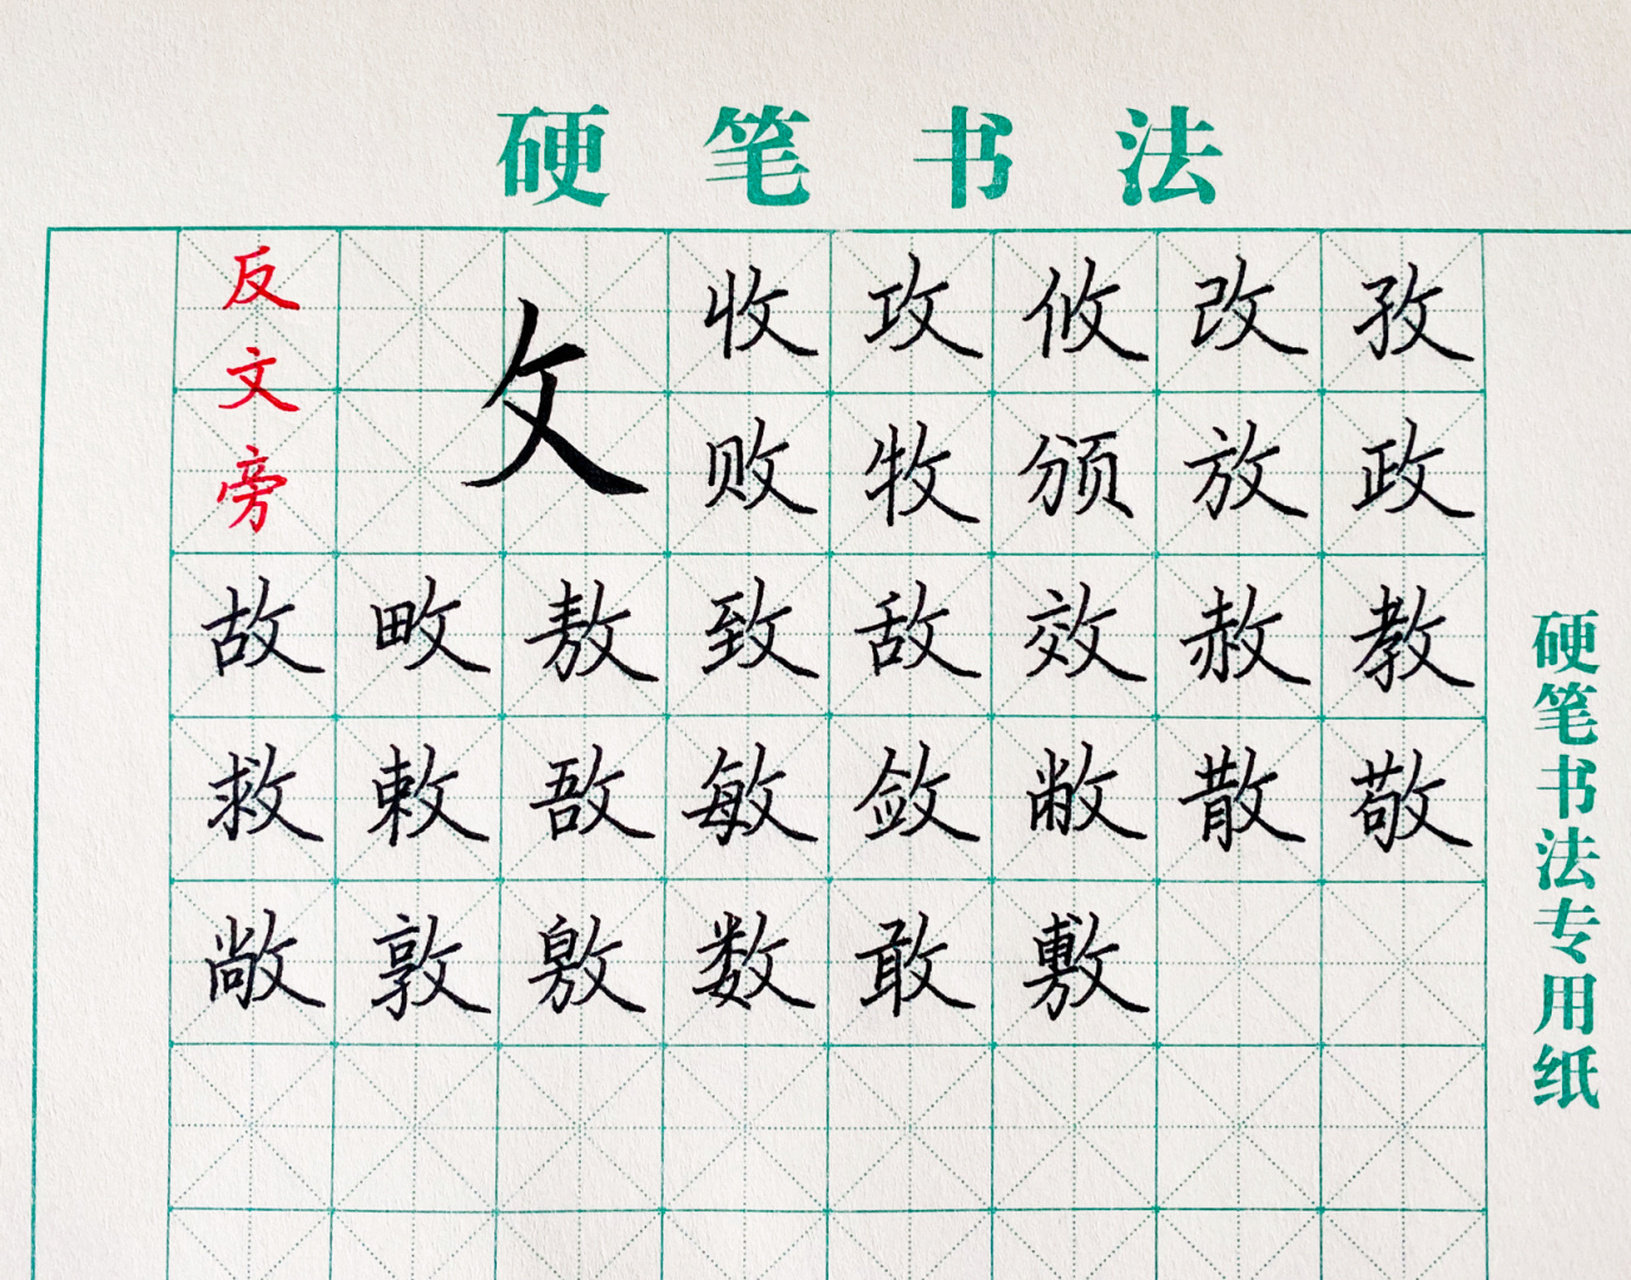 硬笔书法
反文旁
攵
收攻攸改孜
败牧颁放政
故畋敖致敌效赦教
救敕敔敏敛敝散敬
敞敦敫数敢敷
硬笔书法专用纸